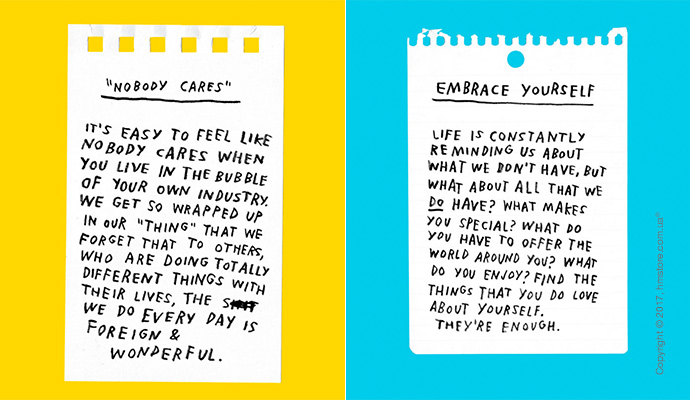 "NOBODY CARES"
IT'S EASY TO FEEL LIKE
NOBODY CARES WHEN
YOU LIVE IN THE BUBBLE
OF YOUR OWN INDUSTRY.
WE GET SO WRAPPED UP
IN OUR "THING" THAT WE
FORGET THAT TO OTHERS,
WHO ARE DOING TOTALLY
DIFFERENT THINGS WITH
THEIR LIVES, THE
WE DO EVERY DAY IS
FOREIGN &
WONDERFUL.
EMBRACE YOURSELF
LIFE IS CONSTANTLY
REMINDING US ABOUT
WHAT WE DON'T HAVE, BUT
WHAT ABOUT ALL THAT WE
DO HAVE? WHAT MAKES
YOU SPECIAL? WHAT DO
YOU HAVE TO OFFER THE
WORLD AROUND YOU? WHAT
DO YOU ENJOY? FIND THE
THINGS THAT YOU DO LOVE
ABOUT YOURSELF.
THEY'RE ENOUGH.
Copyright © 2017 hmstore.com.ua®